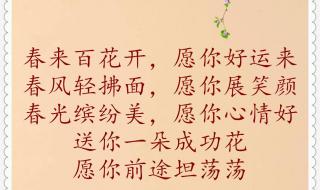 春来百花开，愿你好运来
春风轻拂面，愿你展笑颜
春光缤纷美，愿你心情好
送你一朵成功花
愿你前途坦荡荡